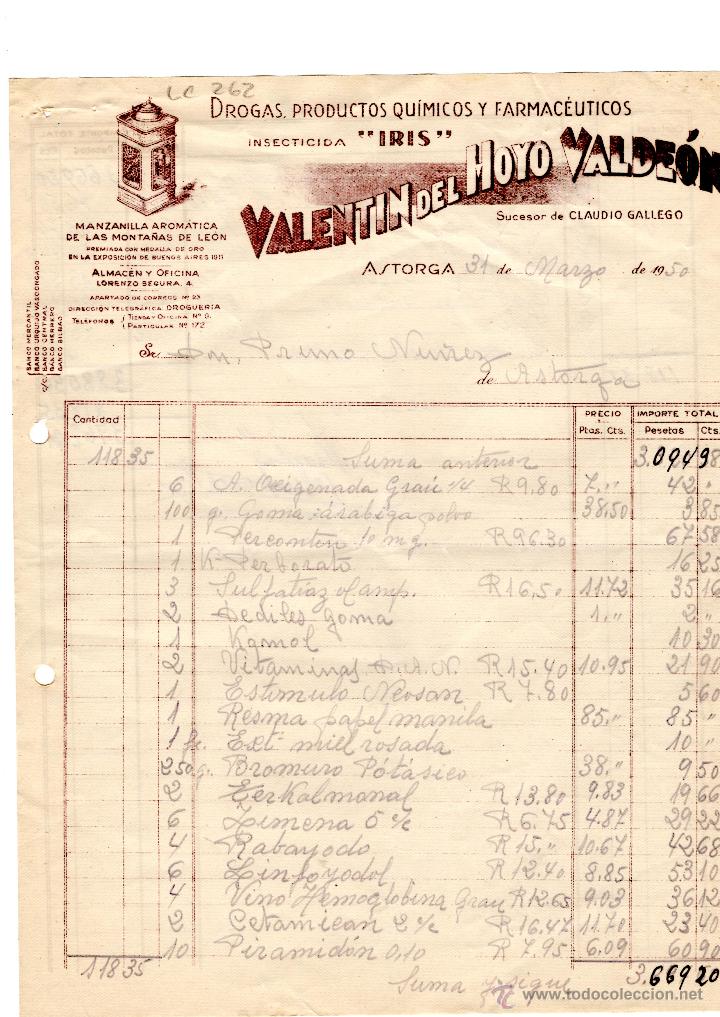 LC 262
DROGAS, PRODUCTOS QUÍMICOS Y FARMACÉUTICOS
INSECTICIDA "IRIS"
VALENTIN DEL HOYO VALDEÓN
Sucesor de CLAUDIO GALLEGO
MANZANILLA AROMÁTICA
DE LAS MONTAÑAS DE LEÓN
PREMIADA CON MEDALLA DE ORO
EN LA EXPOSICIÓN DE BUENOS AIRES 1911
ALMACÉN Y OFICINA
LORENZO SEGURA, 4
APARTADO DE CORREOS Nº 23
DIRECCIÓN TELEGRÁFICA: DROGUERIA
TELÉFONOS TIENDA Y OFICINA Nº 9.
PARTICULAR Nº 172
c/c. BANCO MERCANTIL
BANCO URQUIJO VASCONGADO
BANCO CENTRAL
BANCO HERRERO
BANCO BILBAO
ASTORGA 31 de Marzo de 1950
Sr. Don Primo Nuñez
de Astorga
Cantidad PRECIO IMPORTE TOTAL
Ptas. Cts. Pesetas Cts.
118 35 Suma anterior 3.094 98
6 A. Oxigenada Grau 1/4 R 9.80 7 " 42 "
100 g. Goma arábiga polvo 38,50 3 85
1 Perconten 10 mg. R 96.30 67 58
1 K Perborato 16 25
3 Sulfatiazol amp. R 16,50 11.72 35 16
2 Dediles goma 1 " 2 "
1 Kamol 10 30
2 Vitaminas R 15.40 10.95 21 90
1 Estimulo Neosan R 7.80 5 60
1 Resma papel manila 85 " 85 "
1 Extº miel rosada 10 "
250 g. Bromuro Potásico 38 " 9 50
2 R 13.80 9.83 19 66
6 Limena 5 c/c R 6.75 4.87 29 22
4 Rabayodo R 15 " 10.67 42 68
6 Linfoyodol R 12.40 8.85 53 10
4 Vino Hemoglobina Grau R 12.65 9.03 36 12
2 Cetamican 2 c/c R 16.47 11.70 23 40
10 Piramidón 0,10 R 7.95 6.09 60 90
118 35 Suma y sigue 3.669 20
www.todocoleccion.net